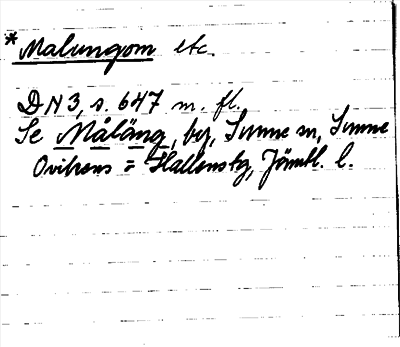 *Malungom etc.
DN 3, s. 647 m. fl.
Se Måläng, by, Sunne sn, Sunne
Ovikens = Hallens tg, Jämtl. l.